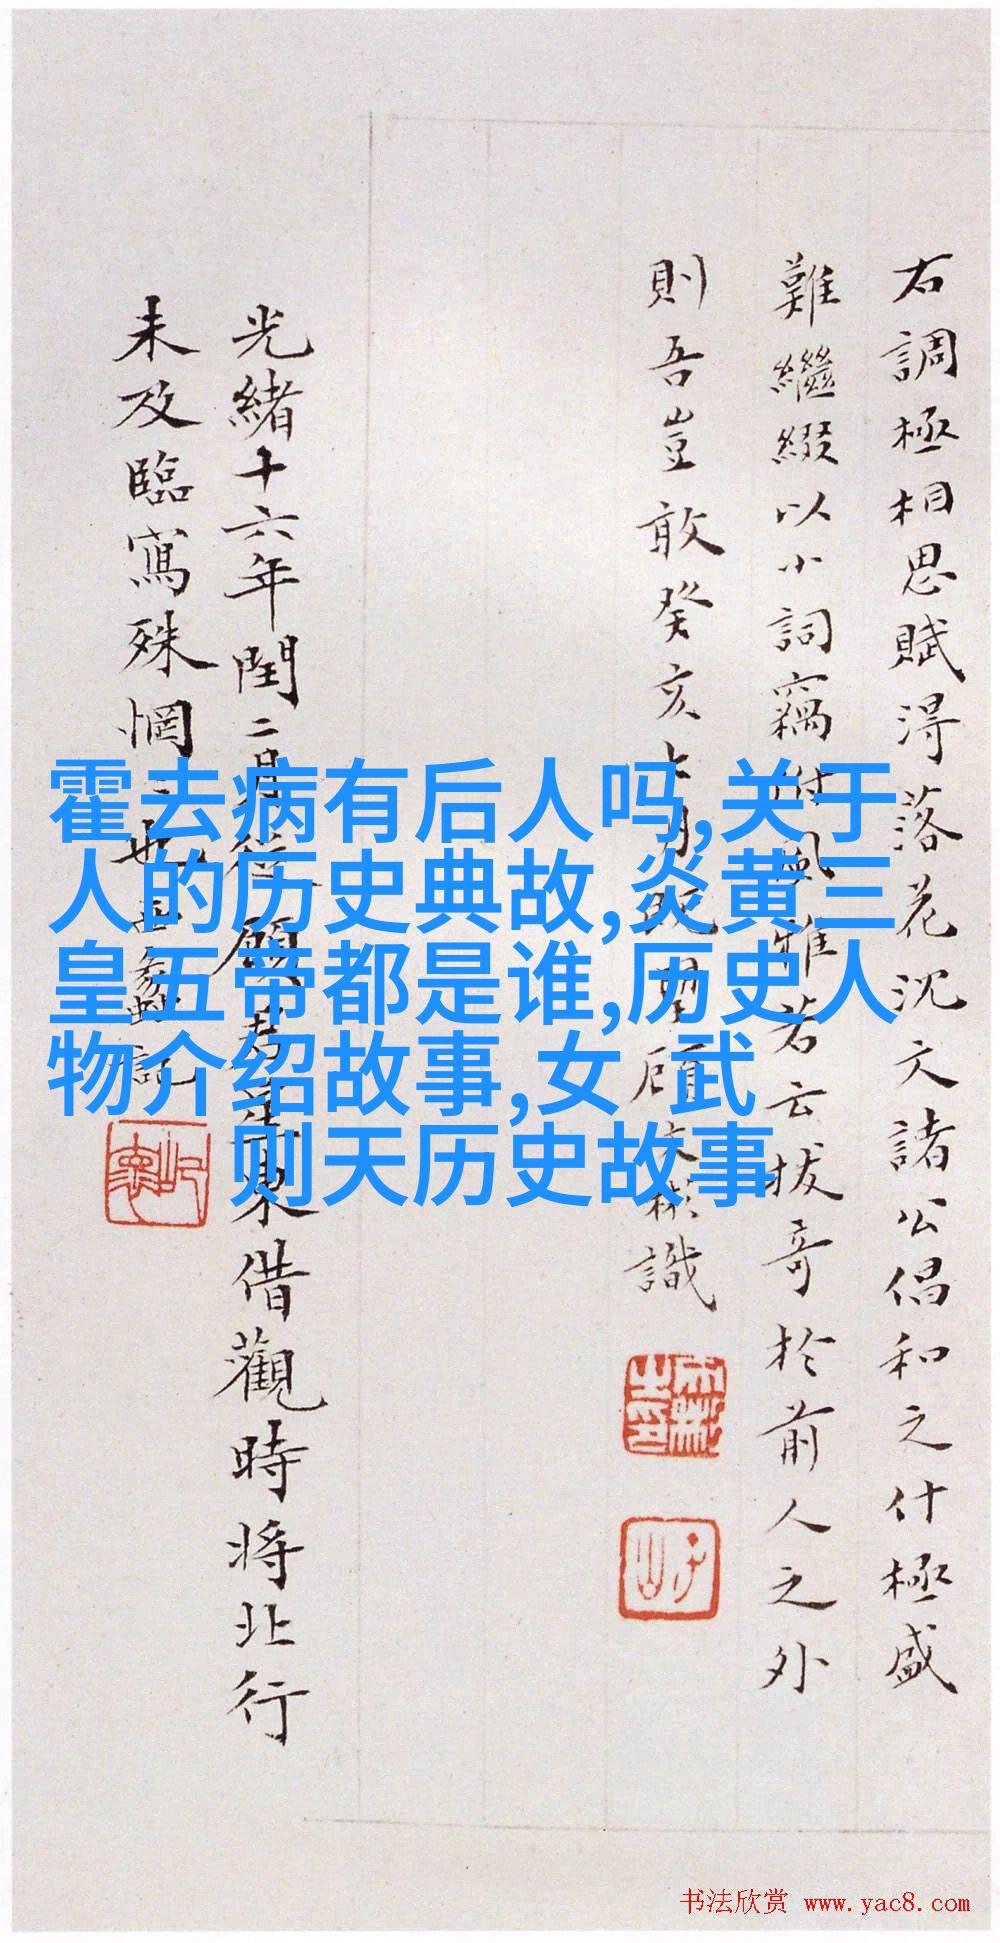 右調極相思賦得落花沈文諸公倡和之什極盛
難繼綴以小詞竊付風雅若云拔奇於前人之外
則吾豈敢癸亥七月既望顧文彬識
光緒十六年閏二月從顧君星東借觀時将北行
未及臨寫殊惘
霍去病有后人吗,关于
人的历史典故,炎黄三
皇五帝都是谁,历史人
物介绍故事,女 武
则天历史故事
书法欣赏 www.yac8.com